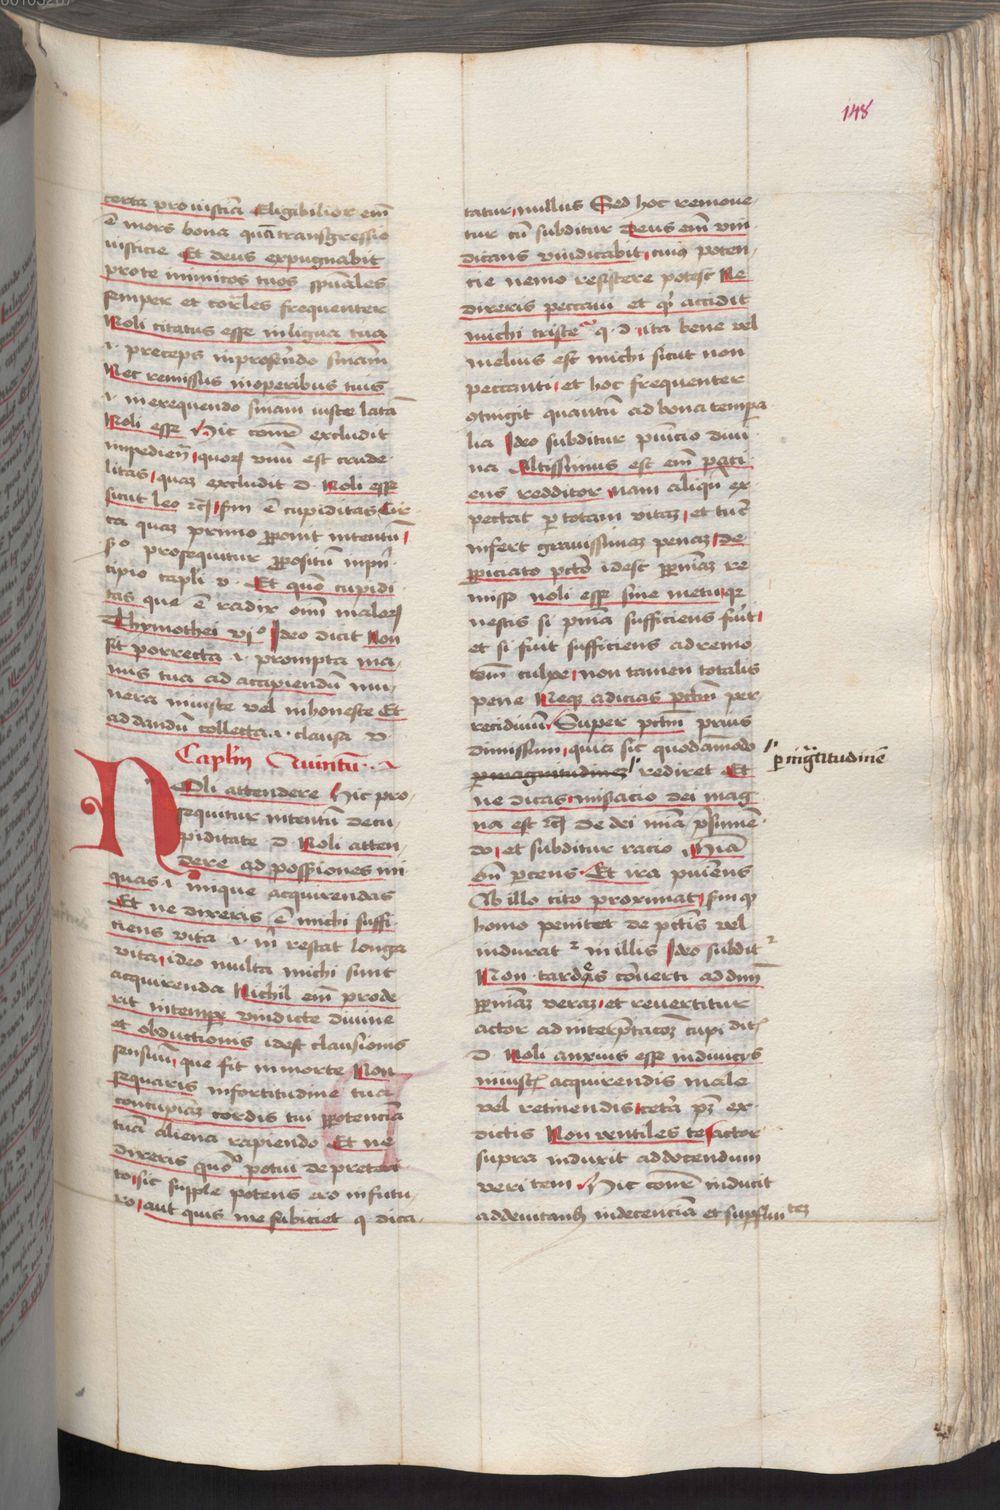 148
certa pro iusticia Eligibilior em̄
ē mors bona qua͞ transgressio
iusticie Et deus expugnabit
pro te inimicos tuos spūales
semper et cor͞les frequenter
Noli citatus esse in ligua tua
.i. preceps in proferēdo sniam
Nec remissus in operibus tuis
.i. in exequendo sniam iuste lata͞
Noli esse Hic cōn͞r excludit
impedien͞ quorꝫ vnū est crude
litas quaꝫ excludit d. Noli esse
sicut leo rc̄ Sm̄ ē cupiditas Cir
ca quaꝫ primo ꝓponit intentū
2o prosequitur ꝓpositū in prin
cipio capli v. Et quō cupidi
tas que ē radix om̄ malorꝫ
Thymothei vjo Ideo dicit Non
sit porrecta .i. prompta ma
nus tua ad accipiendū mu
nera iniuste vel inhoneste Et
ad dandū collecta .i. clausa v
Caplm̄ Quintū
Noli attendere Hic pro
sequitur intentū de cu
piditate d. Noli atten
dere ad possiones ini
quas .i. inique acquirendas
Et ne dixeris ē michi suffi
ciens vita .i. m̄ restat longa
vita ideo multa michi sunt
acquirenda Nichil em̄ prode
rit in tempe vindicte diuine
et obductionis idest clausionis
sensuū que fit in morte Non
sequaris in fortitudine tua
concupiaꝫ cordis tui ꝓ potencia͞
tua͞ aliena rapiendo Et ne
dixeris quōo potui de preteri
to sic supple potens ero in futu
ro aut quis me subiciet q. dica
tatur nullus Sed hoc remoue
tur cū subditur Deus em̄ vin
dicans vindicabit cuiꝯ poten
cie nemo resistere potest Ne
dixeris peccaui et qͥ accidit
michi triste q. d. ita bene vel
melius est michi sicut non
peccanti et hoc frequenter
otingit quantū ad bona tempa
lia Ideo subditur punicio diui
na Altissimus est em̄ paci
ens redditor nam aliqn̄ ex
pectat p totam vitaꝫ et tūc
infert grauissimaꝫ penaꝫ De
ꝓpiciato pctō idest ꝑ pn͞iaꝫ re
misso noli esse sine metu qꝛ
nestis si pn͞ia sufficiens fuit
et si fuit sufficiens ad remo
cōm culpe non tamen totalis
pene Neqꝫ adicias pctm̄ per
recidiuū Super pctm̄ prius
dimissum quia sic quodāmodo
p magnitudinē rediret Et
p ingͣtitudinē
ne dicas miseracio dei mag
na est rc̄ De dei mīa p̄sumē
do et subditur racio Mīa
em̄ pctens Et ira puiēns
Ab illo cito proximat Sm̄ qꝫ
homo penitet de pctīs vel
indurat in illis Ideo subdit
Non tardes cōuerti ad dnm̄
ꝑ pn͞iaꝫ veraꝫ et reuertitur
actor ad interp̄tacōꝫ cupidit
d. Noli anxius esse in diuicijs
iniust acquirendis male
vel retinendis cetā pꝫ ex
dictis Non ventiles te Actor
supra induxit ad docendum
veritem Hic cōn͞r inducit
ad deuitandꝫ indecencia͞ et supfluitꝫ